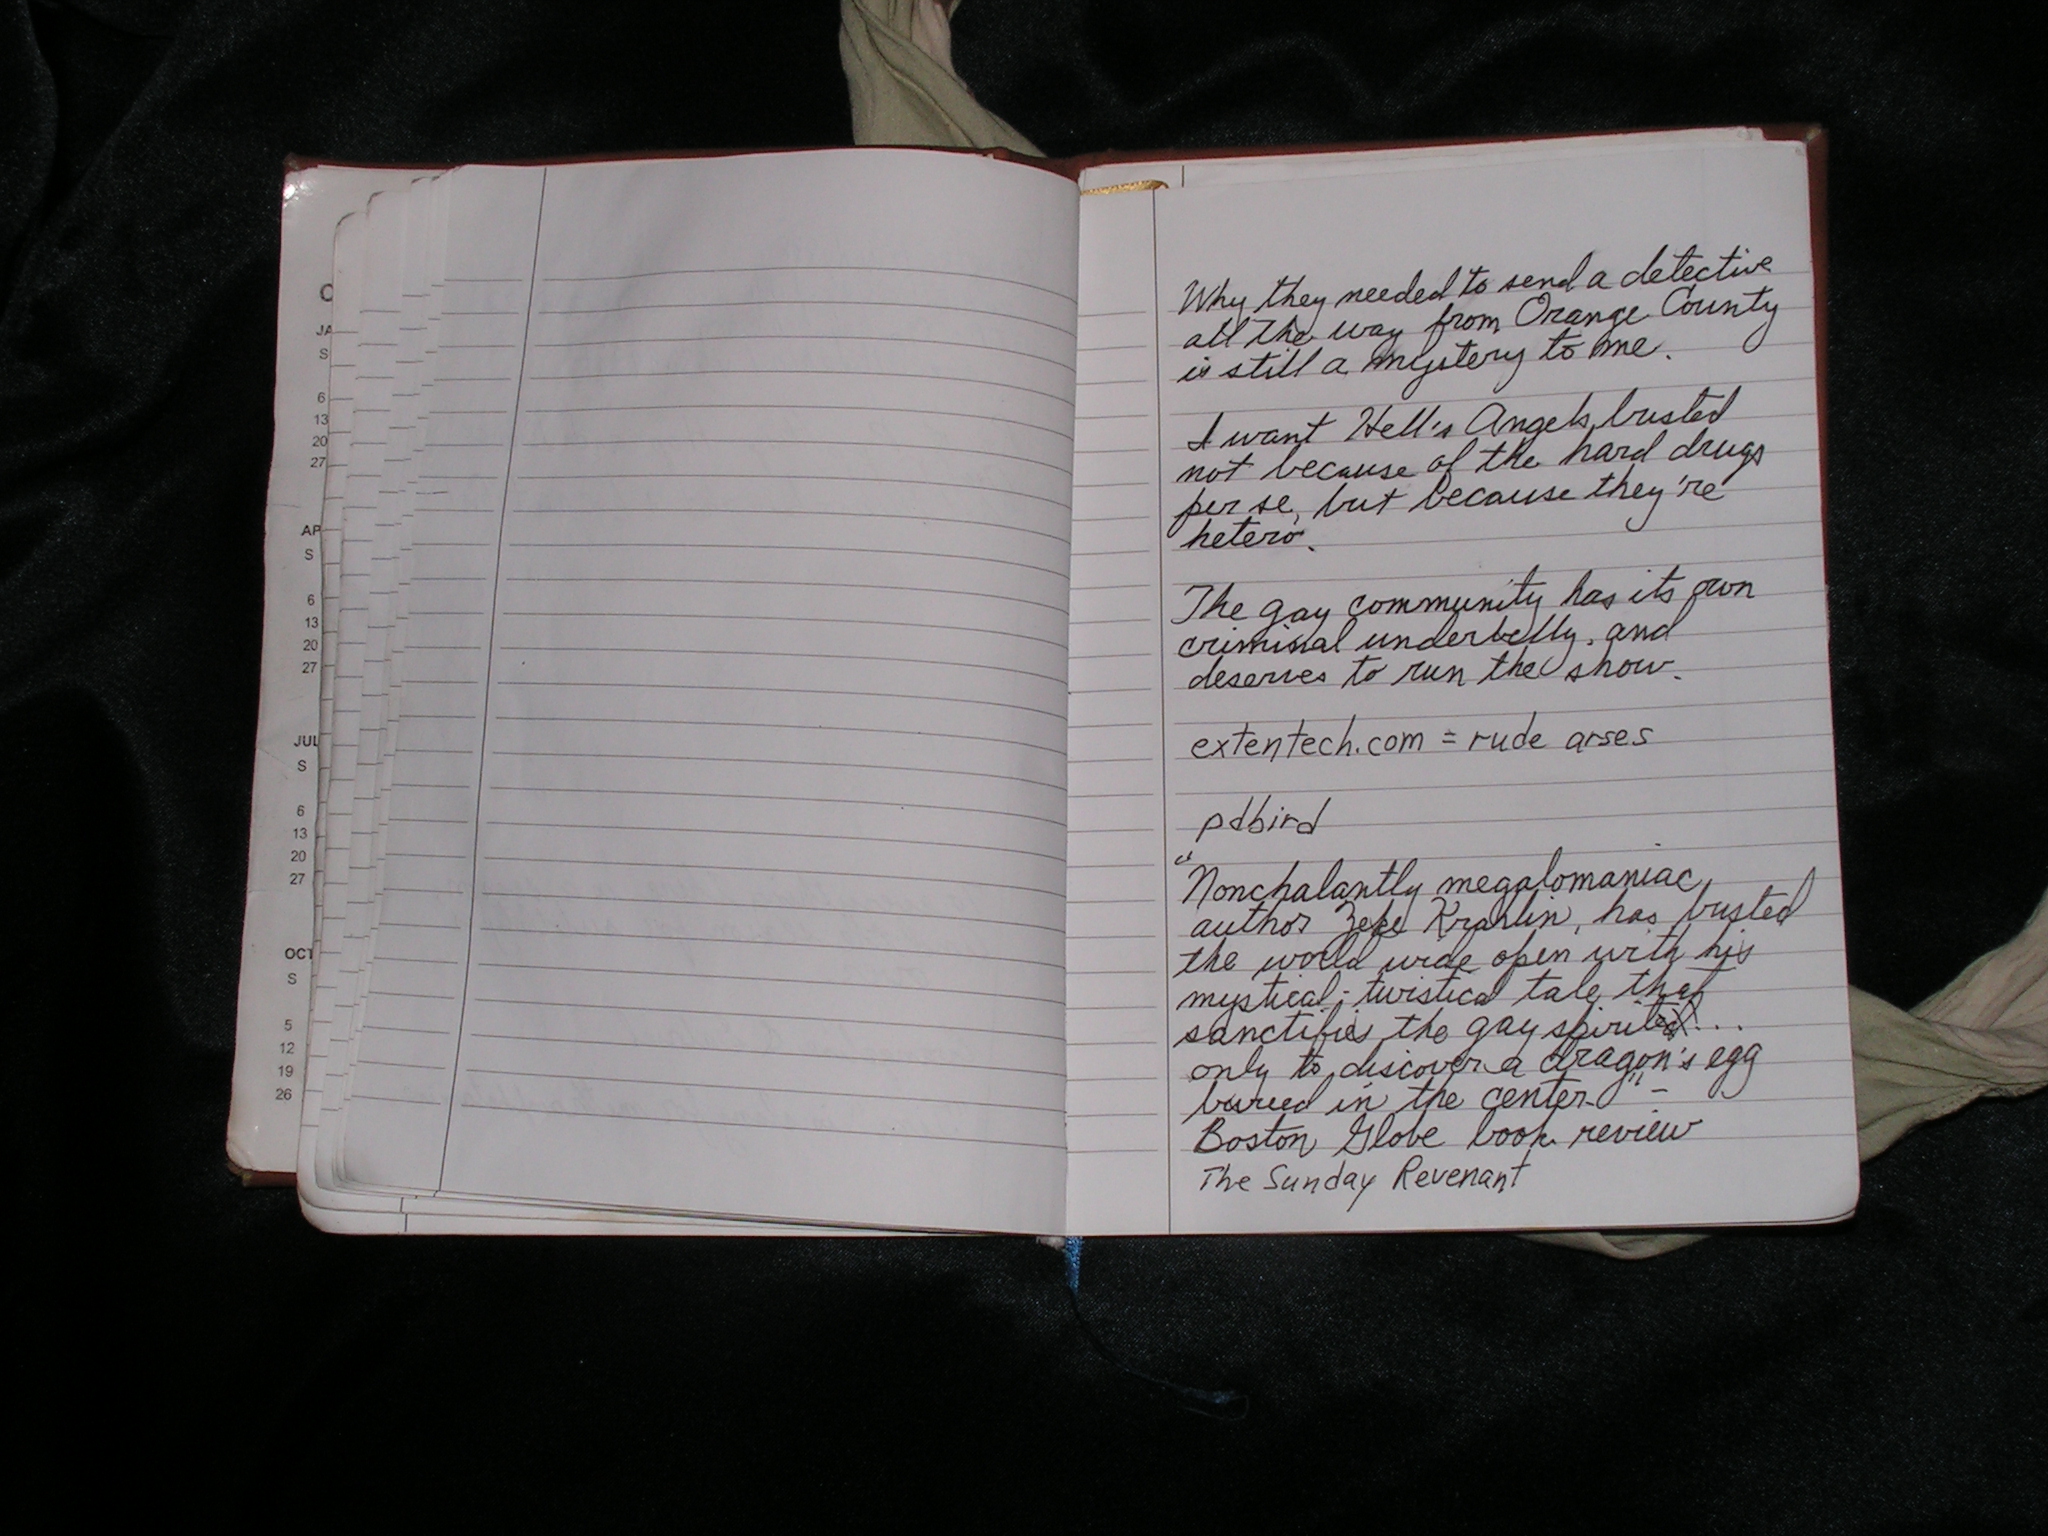 C
JA
S
6
13
20
27
AP
S
6
13
20
27
JUL
S
6
13
20
27
OCT
S
5
12
19
26
Why they needed to send a detective
all the way from Orange County
is still a mystery to me.
I want Hell's Angels busted
not because of the hard drugs
per se, but because they're
hetero.
The gay community has its own
criminal underbelly, and
deserves to run the show.
extentech.com = rude arses
pdbird
"Nonchalantly megalomaniac
author Zeke Krahlin, has busted
the world wide open with his
mystical-twistical tale that
sanctifies the gay spirit...
only to discover a dragon's egg
buried in the center" -
Boston Globe book review
The Sunday Revenant